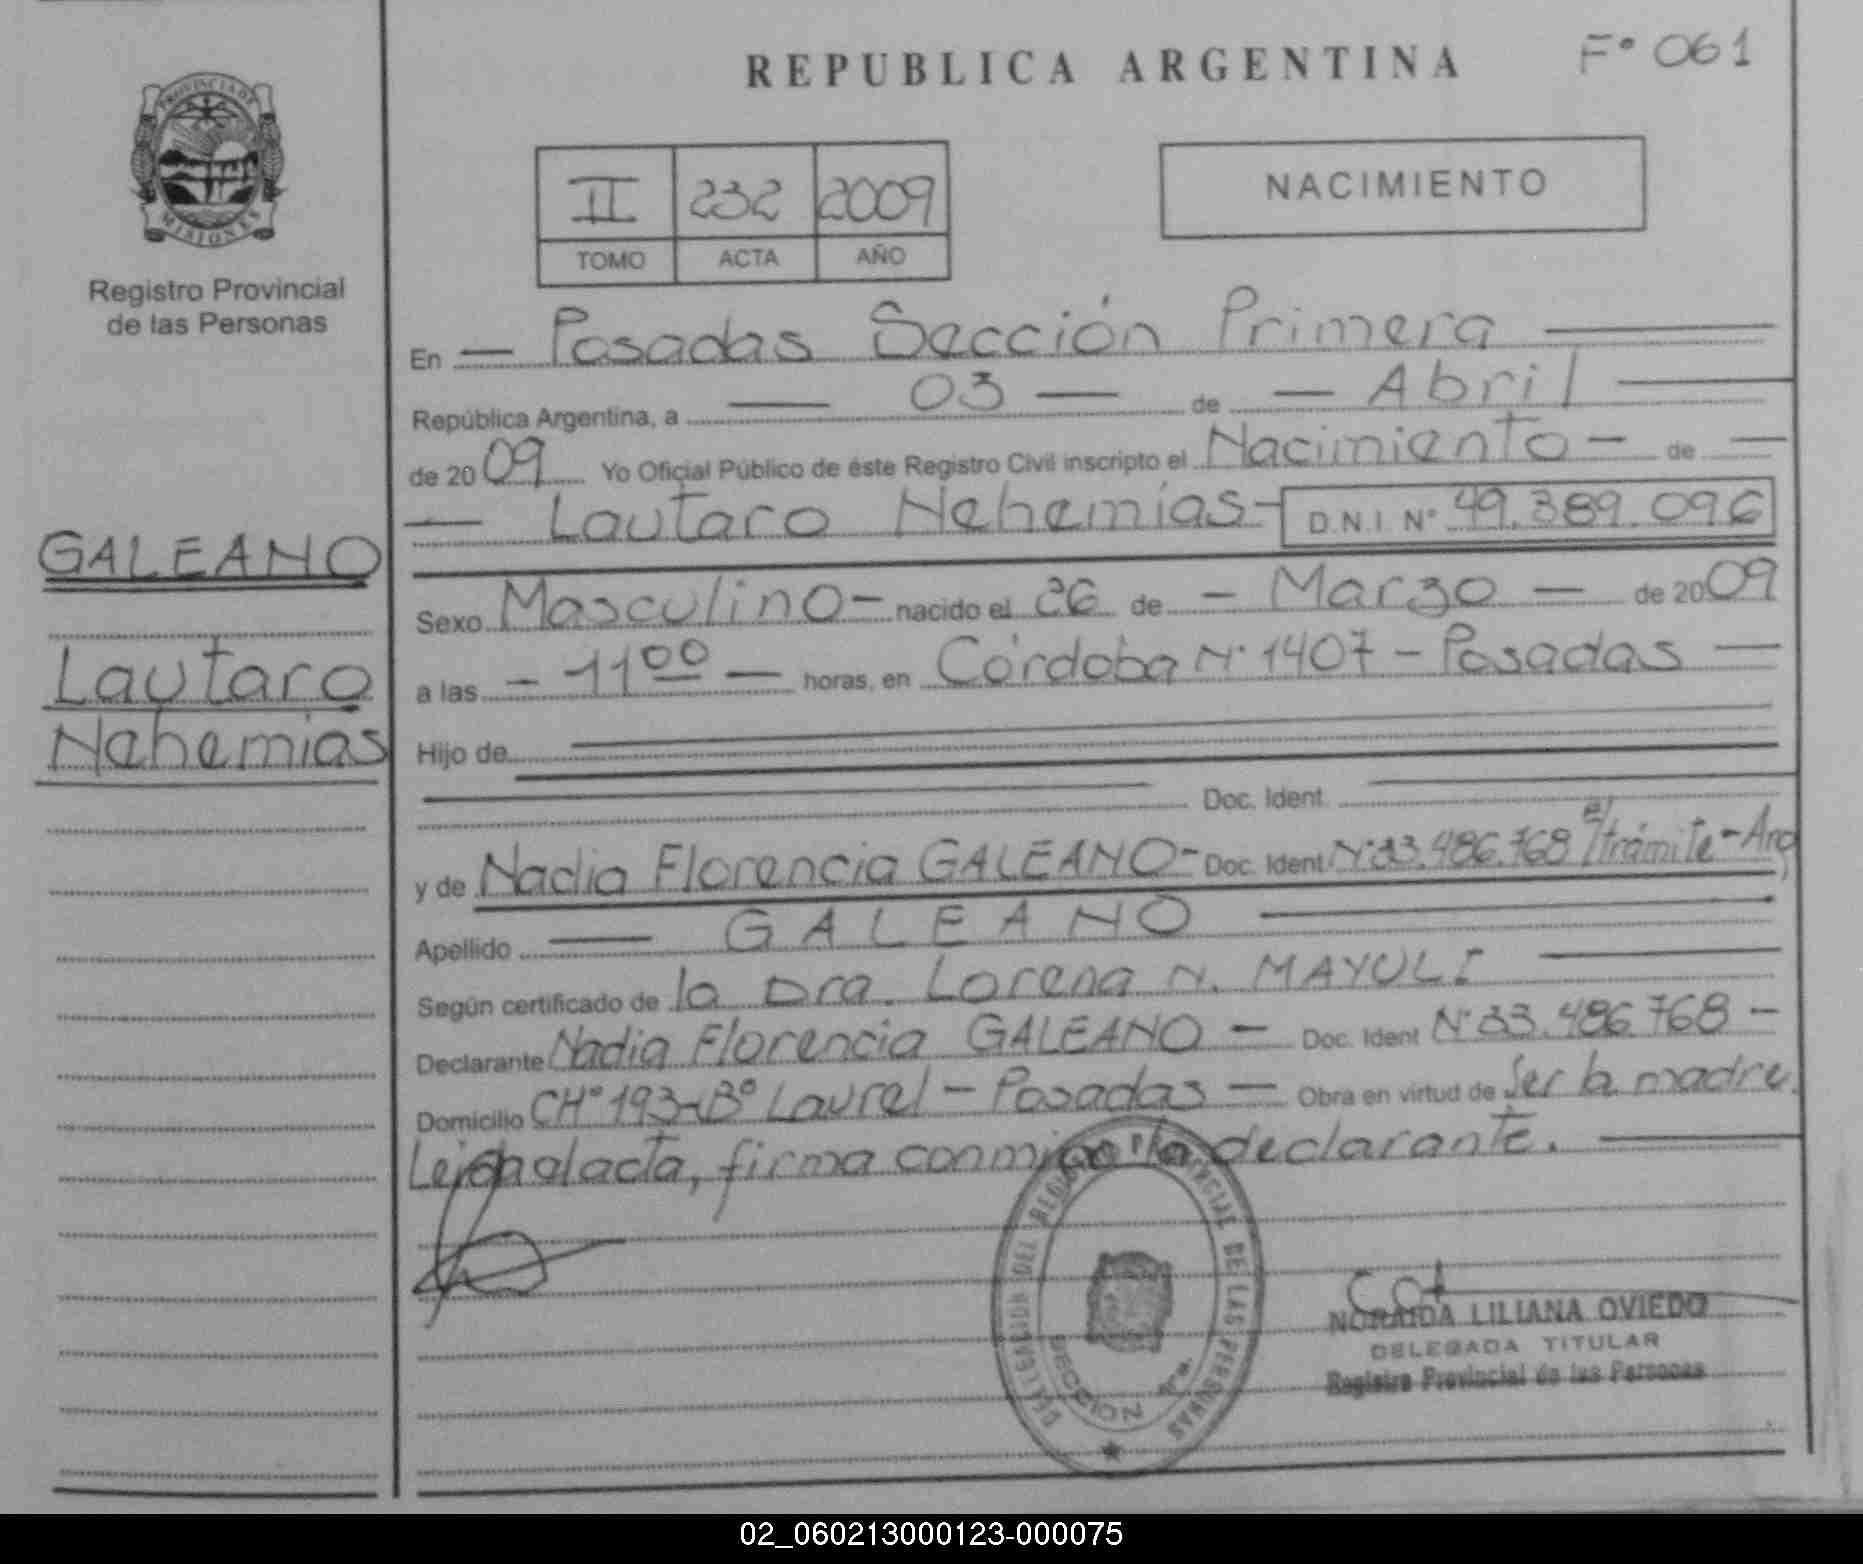 REPUBLICA ARGENTINA
F° 061
PROVINCIA DE
MISIONES
Registro Provincial
de las Personas
II 232 2009
TOMO ACTA AÑO
NACIMIENTO
GALEANO
Lautaro
Nehemias
En — Posadas Sección Primera —
República Argentina, a — 03 — de — Abril —
de 20 09 Yo Oficial Público de éste Registro Civil inscripto el Nacimiento — de —
— Lautaro Nehemías - D.N.I N° 49.389.096
Sexo Masculino - nacido el 26 de — Marzo — de 2009
a las - 11 00 — horas, en Córdoba N° 1407 - Posadas —
Hijo de
Doc. Ident.
y de Nadia Florencia GALEANO - Doc. Ident N° 33.486.768 e/trámite - Arg
Apellido — GALEANO
Según certificado de la Dra. Lorena N. MAYULI —
Declarante Nadia Florencia GALEANO — Doc. Ident N° 33.486.768 —
Domicilio CH° 193 - B° Laurel - Posadas — Obra en virtud de Ser la madre.
Leída el acta, firma conmigo la declarante. —
DELEGACION DEL REGISTRO PROVINCIAL DE LAS PERSONAS
SECCION 1ra.
NORAIDA LILIANA OVIEDO
DELEGADA TITULAR
Registro Provincial de las Personas
02_060213000123-000075